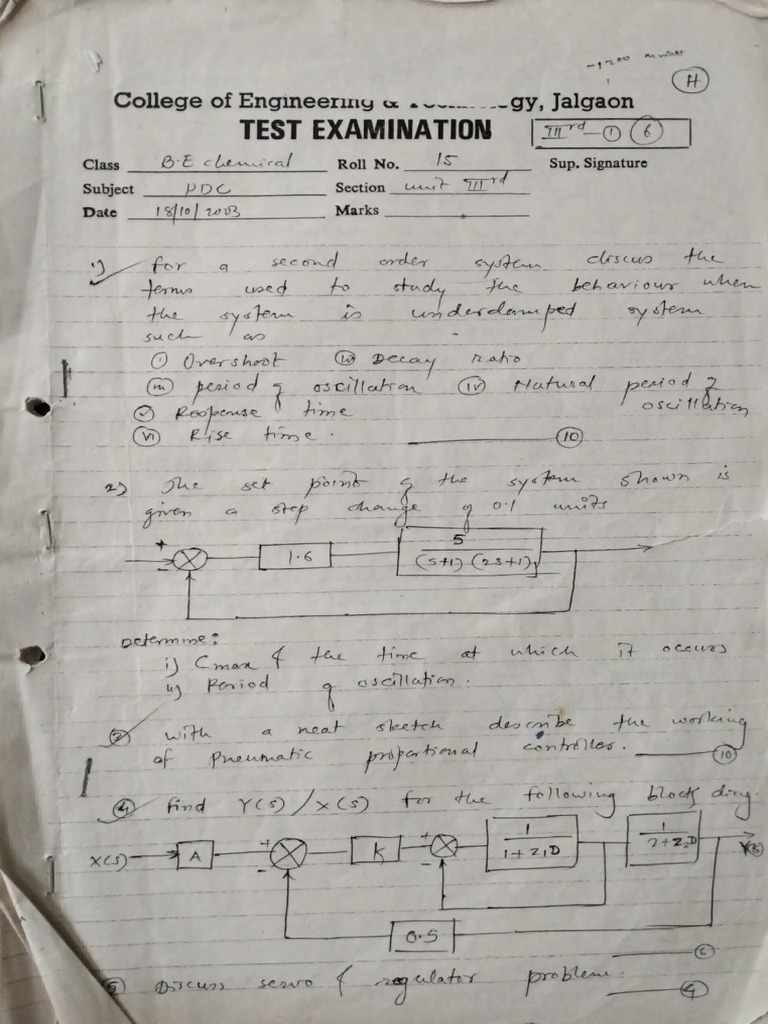 -1200
H
College of Engineering & gy, Jalgaon
TEST EXAMINATION
IIIrd - 1 6
Class B.E chemical Roll No. 15 Sup. Signature
Subject PDC Section unit IIIrd
Date 18/10/2003 Marks
1) for a second order system discus the
terms used to study the behaviour when
the system is underdamped system
such as
i) Overshoot ii) Decay ratio
iii) period of oscillation iv) Natural period of
v) Response time oscillation
vi) Rise time. 10
2) The set point of the system shown is
given a step change of 0.1 units
+ - 1.6 5/(s+1)(2s+1)
Determine:
i) Cmax & the time at which it occurs
ii) Period of oscillation.
3) with a neat sketch describe the working
of pneumatic proportional controller. 10
4) find Y(s)/X(s) for the following block diag.
X(s) A + - K + - 1/1+Z1D 1/2+Z2D Y(s)
0.5
6
5) Discuss servo & regulator problem. 4